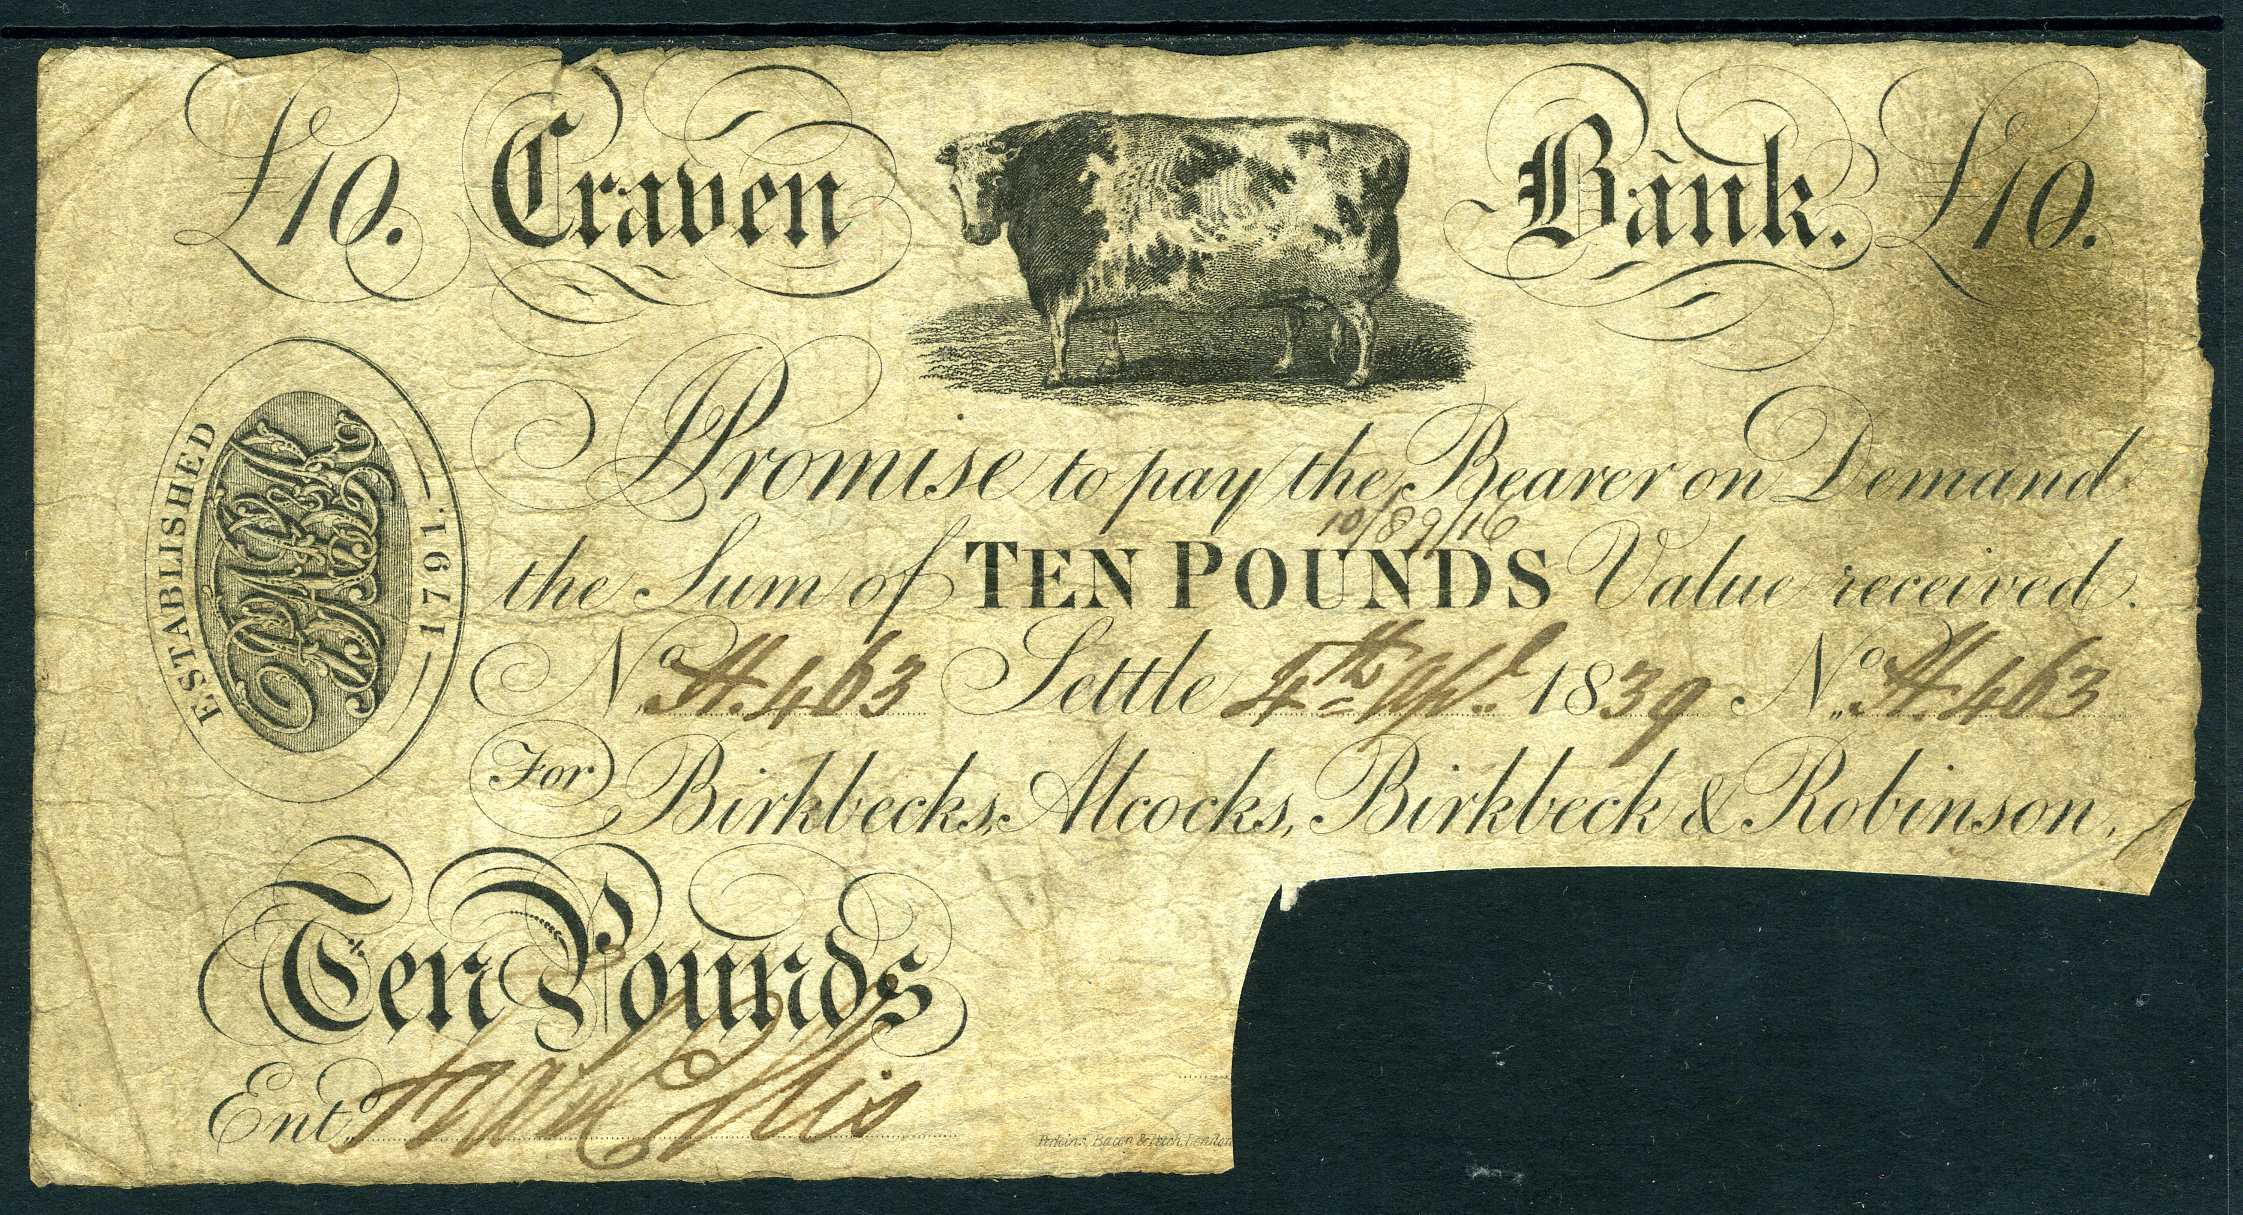 £10. Craven Bank. £10.
ESTABLISHED 1791.
Promise to pay the Bearer on Demand
10/89/16
the Sum of TEN POUNDS Value received.
No. H.463 Settle 4th Apl. 1839 No. H.463
For Birkbecks, Alcocks, Birkbeck & Robinson,
Ten Pounds
Entd. Ellis
Perkins, Bacon & Petch, London